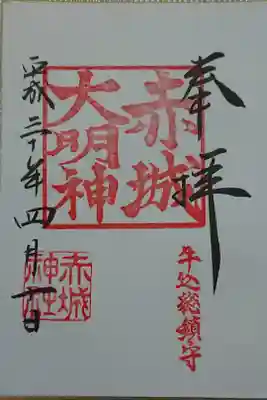 奉拝
赤城
大明神
牛込総鎮守
平成三十年四月一日
赤城
神社